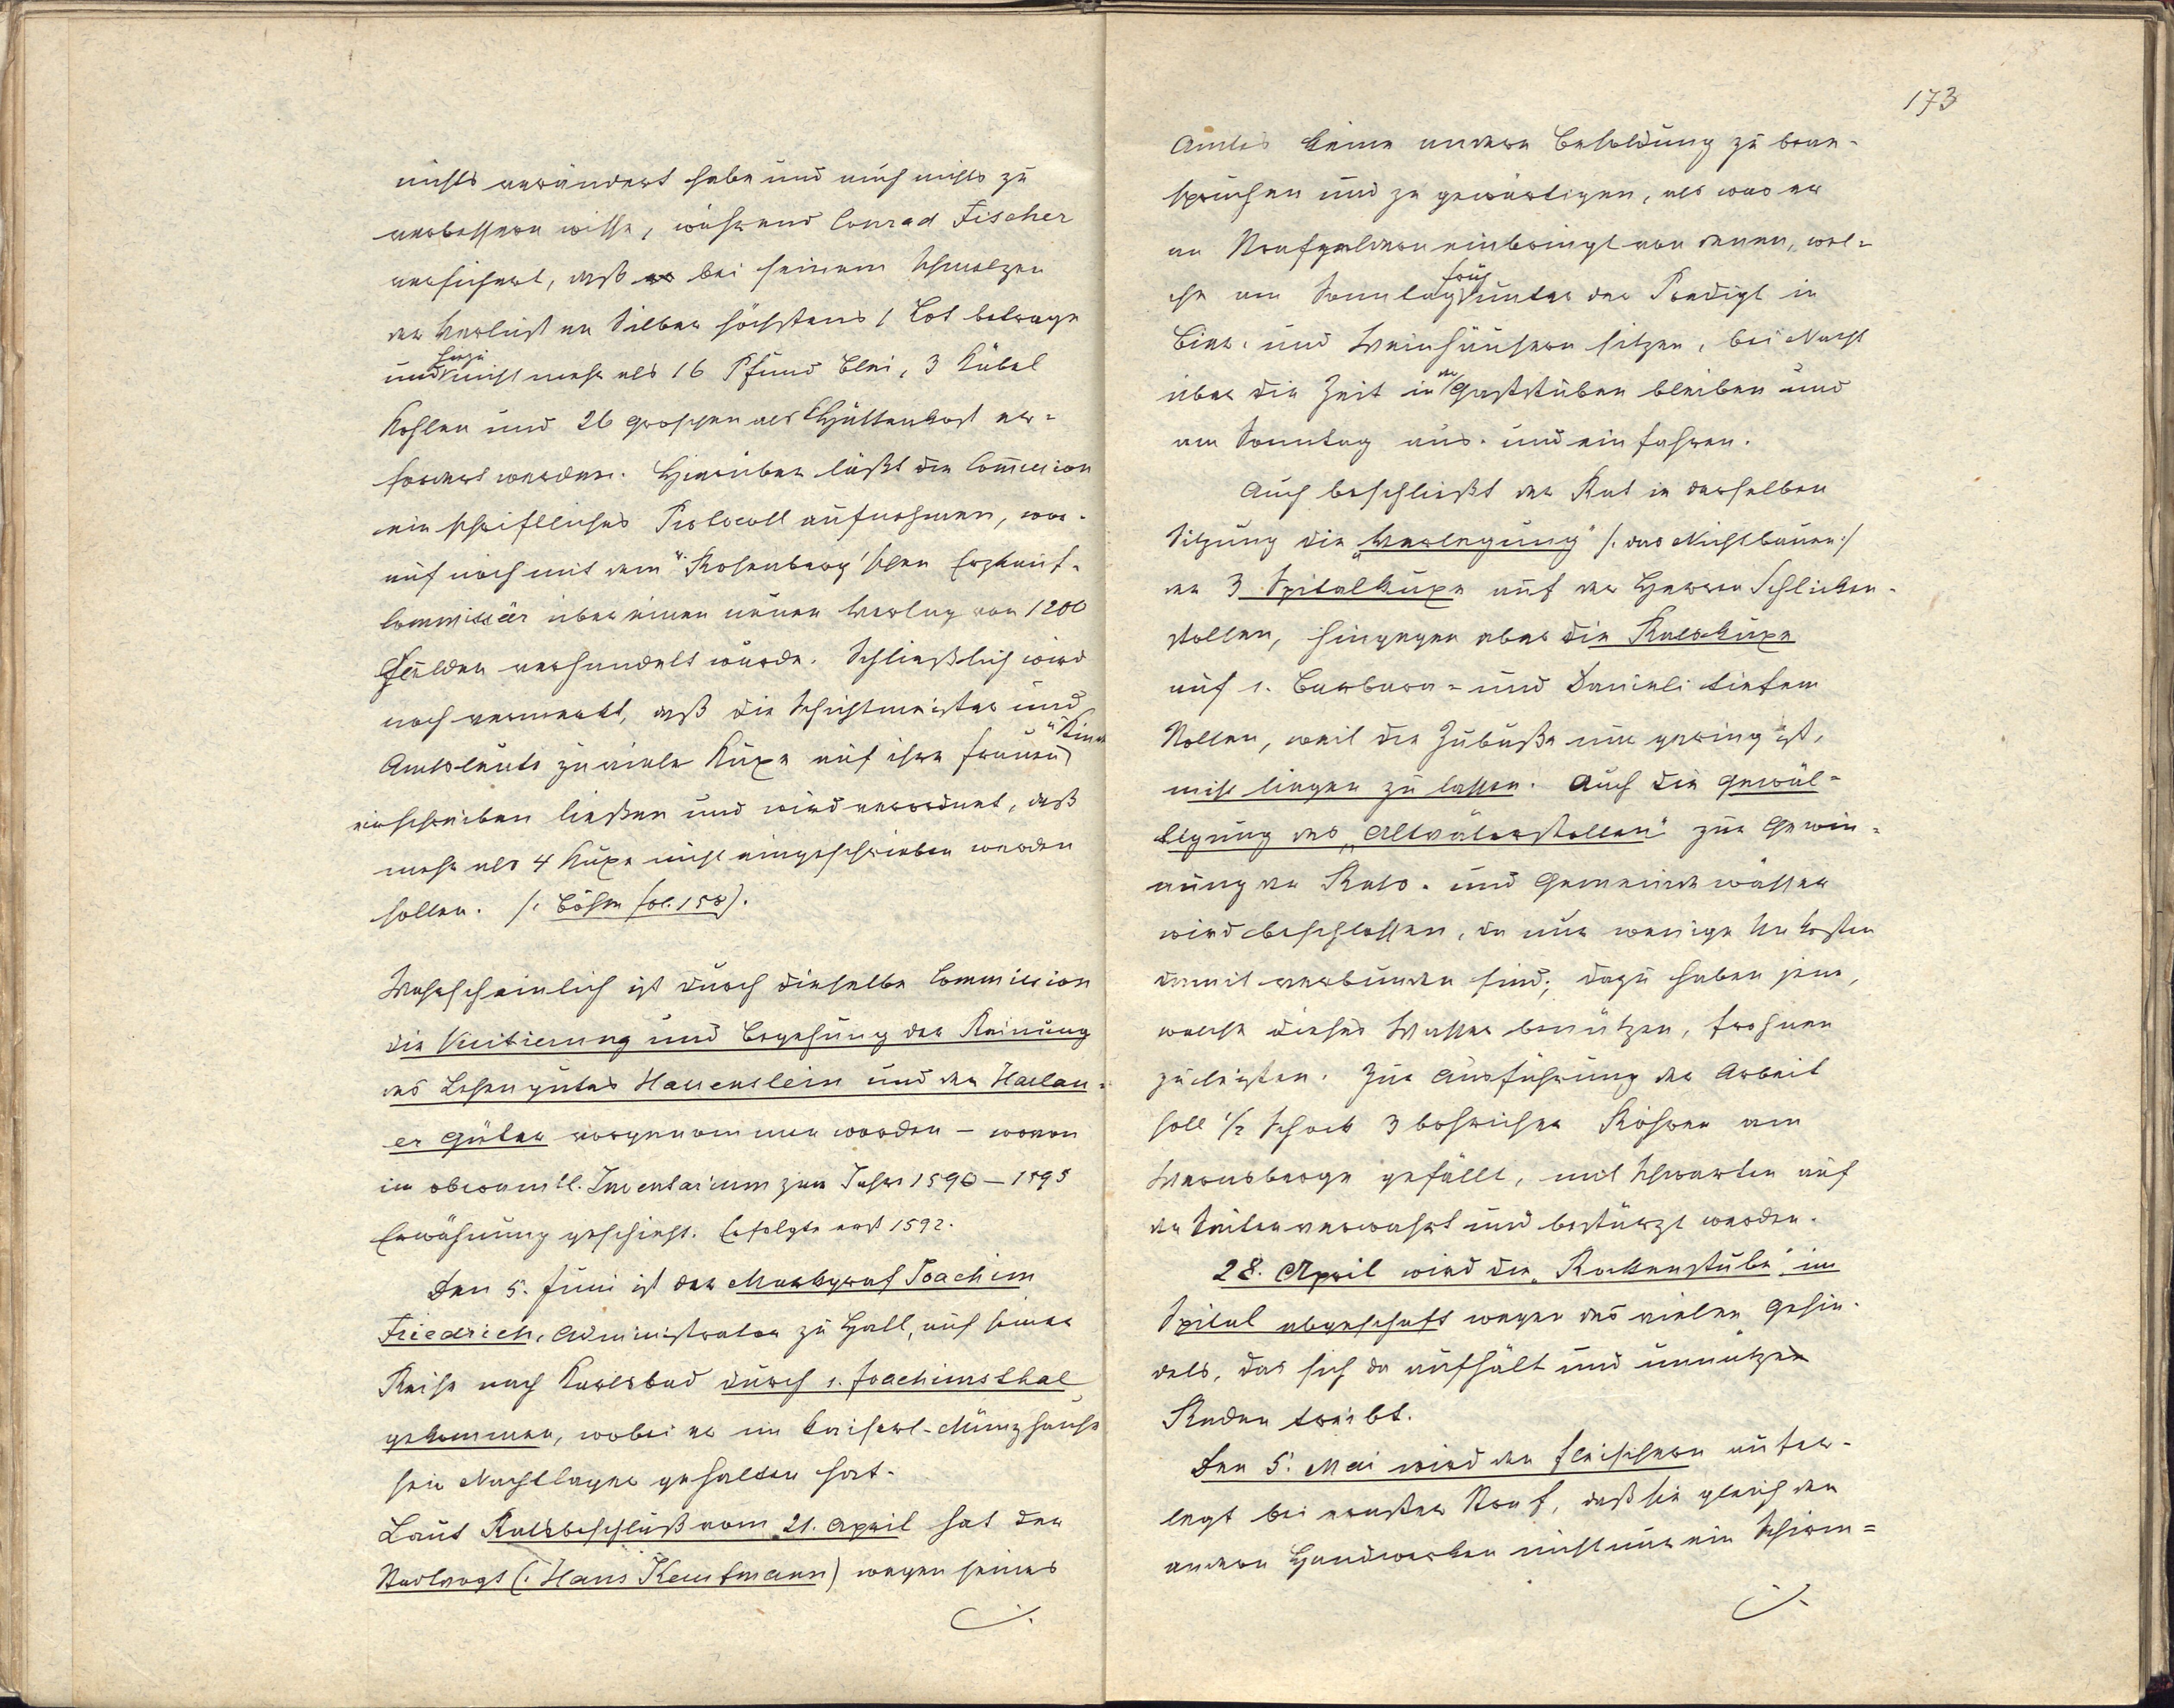 nichts verändert habe und auch nichts zu
verbessern wisse, während Conrad Fischer
versichert, daß bei seinem Schmelzen
der Verlust an Silber höchstens 1 Lot betrage
und hiezu nicht mehr als 16 Pfund Blei, 3 Kübel
Kohlen und 26 Groschen als Hüttenkost er-
fordert werden. Hierüber läßt die Com̄ission
ein schriftliches Protocoll aufnehmen, wor-
auf noch mit dem "Rosenberg'schen Erzkauf-
commissär über einen neuen Verlag von 1200
Gulden verhandelt wurde. Schließlich wird
noch vermerkt, daß die Schichtmeister und
Amtsleute zu viele Kuxe auf ihre Frauen
einschreiben ließen und wird verordnet, daß
mehr als 4 Kuxe nicht eingeschrieben werden
sollen. /: Böhm fol. 158).
Wahrscheinlich ist durch dieselbe Commission
die Visitierung und Begehung der Rainung
des Lehengutes Hauenstein und der Haslau-
er Güter vorgenommen worden – wovon
im oberamtl. Inventarium zum Jahre 1590 – 1595
Erwähnung geschieht. Erfolgte erst 1592.
Den 5. Juni ist der Markgraf Joachim
Friedrich, Administrator zu Hall, auf seiner
Reise nach Karlsbad durch s. Joachimsthal
gekommen, wobei er im kaiserl. Münzhause
sein Nachtlager gehalten hat.
Laut Ratsbeschluß vom 21. April hat der
Stadtvogt (: Hans Kaufmann) wegen seines
173
Amtes keine andere Besoldung zu bean-
spruchen und zu gewärtigen, als was er
an Strafgeldern einbringt von denen, wel-
che am Sonntag früh unter der Predigt in
Bier- und Weinhäusern sitzen, bei Nacht
über die Zeit in den Gaststuben bleiben und
am Sonntag aus- und einfahren.
Auch beschließt der Rat in derselben
Sitzung die „Verlegung" /: das Nichtbauen :/
der 3 Spitalkuxe auf der Herren Schlicken-
stollen, hingegen aber die Ratskuxe
auf s. Barbara- und Danieli tiefem
Stollen, weil die Zubuße nur gering ist,
nicht liegen zu lassen. Auch die Gewäl-
tigung des „Altväterstollen" zur Gewin-
nung der Rats- und Gemeindewässer
wird beschlossen, da nur wenige Unkosten
damit verbunden sind; dazu haben jene,
welche dieses Wasser benützen, Frohnen
zu leisten. Zur Ausführung der Arbeit
soll ½ Schock 3 bohriche Röhren am
Wernsberge gefällt, mit Schwarten auf
den Seiten verwahrt und bestürzt werden.
28. April wird die „Rockenstube" im
Spital abgeschaft wegen des vielen Gesin-
dels, das sich da aufhält und unnütze
Reden treibt.
Den 5. Mai wird den Fleischern aufer-
legt bei ernster Straf, daß sie gleich den
andern Handwerken nicht nur ein Schirm-